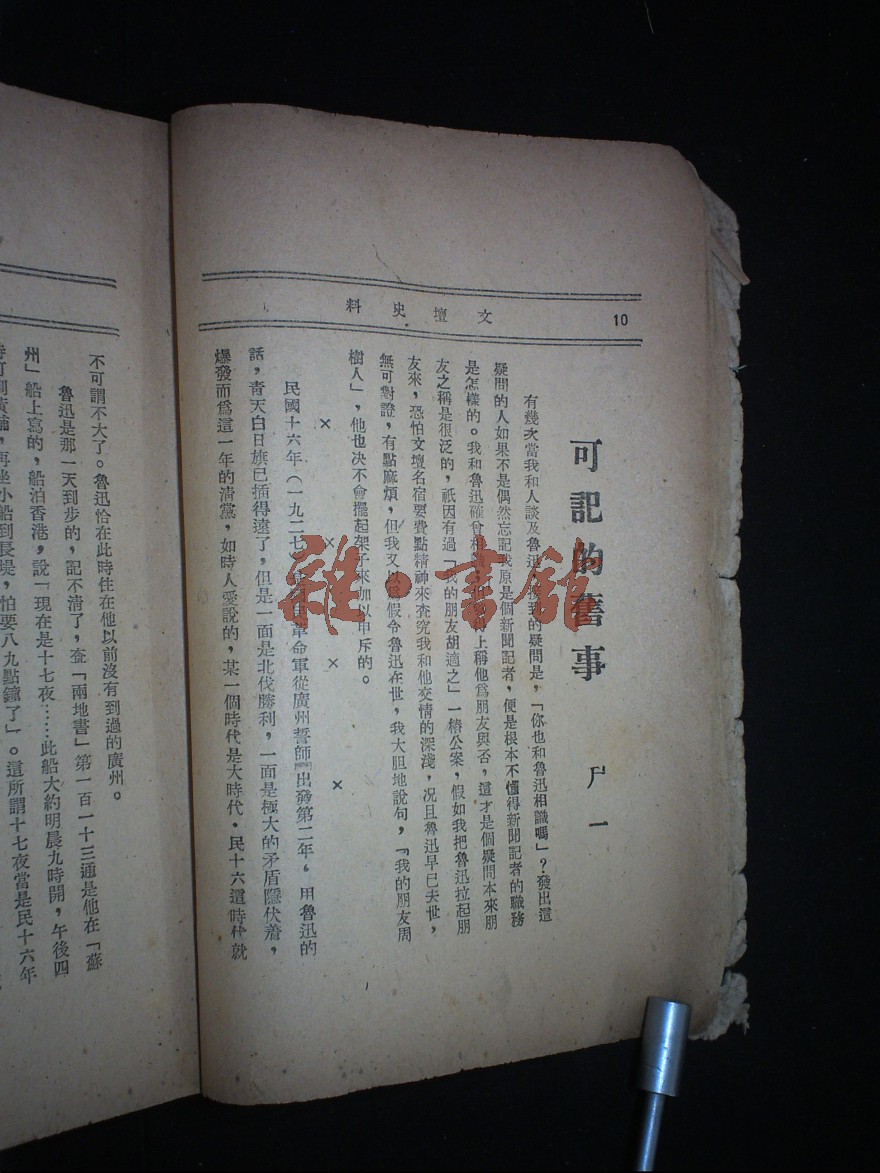 文壇史料
10
可記的舊事
尸一
有幾次當我和人談及魯迅，的疑問是，「你也和魯迅相識嗎」？發出這
疑問的人如果不是偶然忘記我原是個新聞記者，便是根本不懂得新聞記者的職務
是怎樣的。我和魯迅確曾相，上稱他爲朋友與否，這才是個疑問本來朋
友之稱是很泛的，祇因有過「我的朋友胡適之」一樁公案，假如我把魯迅拉起朋
友來，恐怕文壇名宿要費點精神來查究我和他交情的深淺，况且魯迅早已去世，
無可對證，有點麻煩，但我又以假令魯迅在世，我大胆地說句，「我的朋友周
樹人」，他也决不會擺起架子來加以申斥的。
× × × ×
民國十六年（一九二七革命軍從廣州誓師出發第二年，用魯迅的
話，青天白日旗已插得遠了，但是一面是北伐勝利，一面是極大的矛盾隱伏着，
爆發而爲這一年的清黨，如時人愛說的，某一個時代是大時代．民十六這時代就
不可謂不大了。魯迅恰在此時住在他以前沒有到過的廣州。
魯迅是那一天到步的，記不清了，查「兩地書」第一百一十三通是他在「蘇
州」船上寫的，船泊香港，說「現在是十七夜……此船大約明晨九時開，午後四
黃埔，再坐小船到長堤，怕要八九點鐘了」。這所謂十七夜當是民十六年
雜·書館